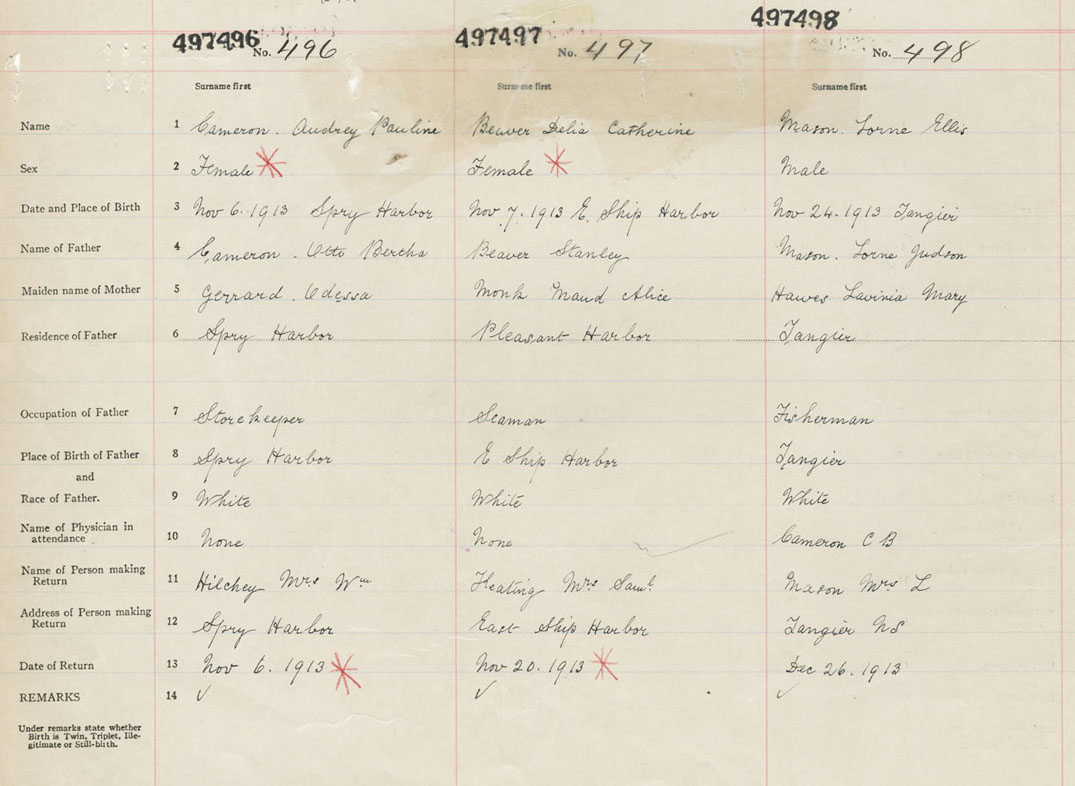 497496 No. 496 497497 No. 497 497498 No. 498
Surname first Surname first Surname first
Name 1 Cameron. Audrey Pauline Beaver Delia Catherine Mason. Lorne Ellis
Sex 2 Female Female Male
Date and Place of Birth 3 Nov 6. 1913 Spry Harbor Nov 7. 1913 E. Ship Harbor Nov 24. 1913 Tangier
Name of Father 4 Cameron. Otto Bertha Beaver Stanley Mason. Lorne Judson
Maiden name of Mother 5 Gerrard. Odessa Monk Maud Alice Hawes Lavinia Mary
Residence of Father 6 Spry Harbor Pleasant Harbor Tangier
Occupation of Father 7 Storekeeper Seaman Fisherman
Place of Birth of Father 8 Spry Harbor E Ship Harbor Tangier
and
Race of Father. 9 White White White
Name of Physician in
attendance 10 None None Cameron C B
Name of Person making
Return 11 Hilchey Mrs Wm Keating Mrs Saml. Mason Mrs L
Address of Person making
Return 12 Spry Harbor East Ship Harbor Tangier NS
Date of Return 13 Nov 6. 1913 Nov 20. 1913 Dec 26. 1913
REMARKS 14 ✓ ✓ ✓
Under remarks state whether
Birth is Twin, Triplet, Ille-
gitimate or Still-birth.